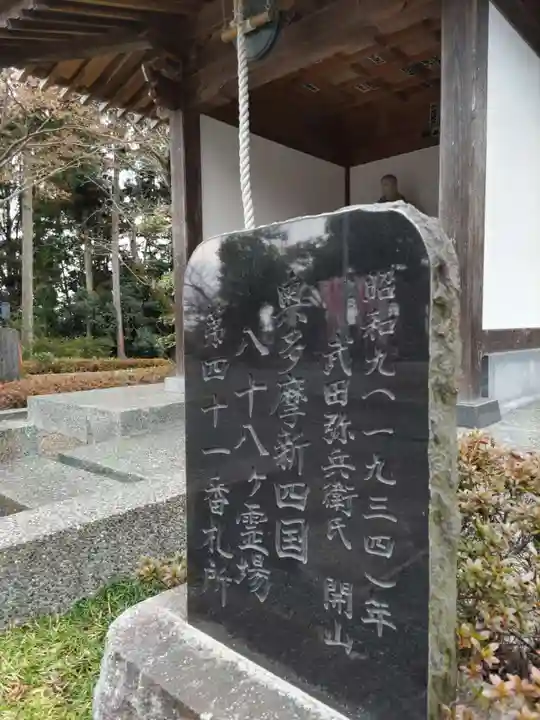 昭和九(一九三四)年
武田弥兵衛氏 開山
奥多摩新四国
八十八ヶ霊場
第四十一番札所